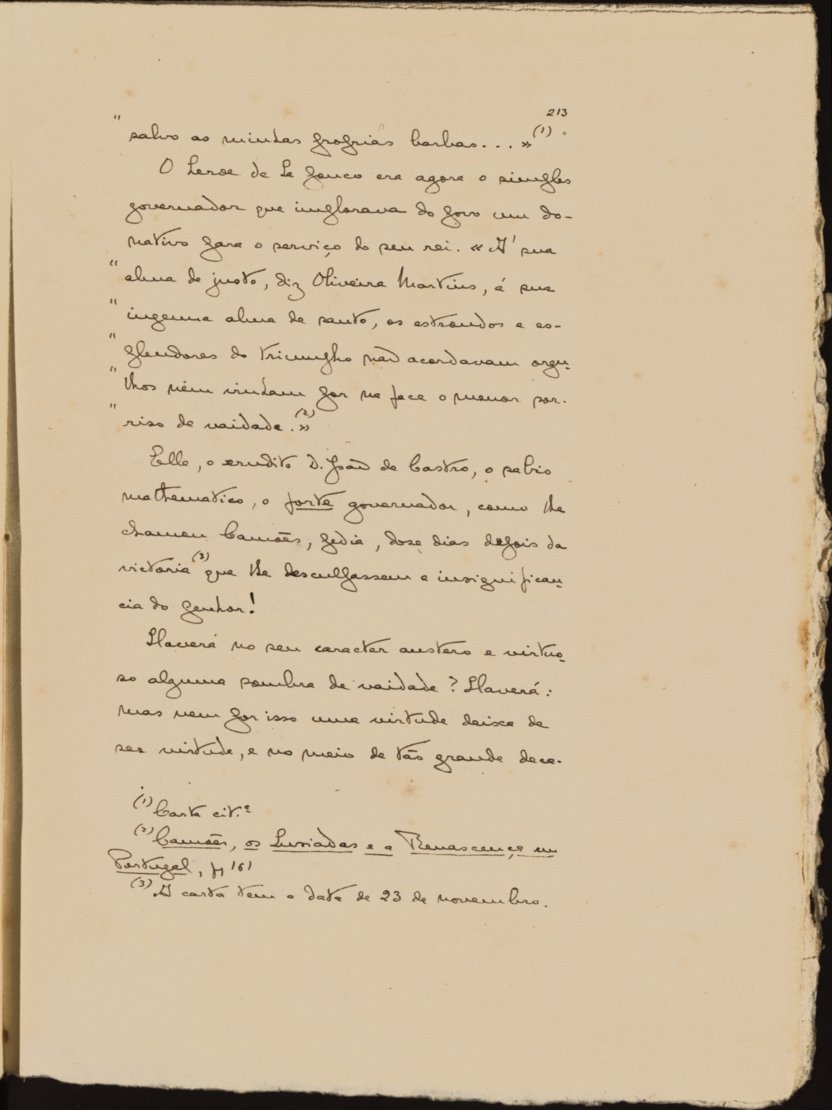 213
" salvo as minhas proprias barbas... » (1).
O heroe de ha pouco era agora o simples
governador que implorava do povo um do-
nativo para o serviço do seu rei. « A' sua
" alma de justo, diz Oliveira Martins, á sua
" ingenua alma de santo, os estrondos e es-
" plendores do triumpho não acordavam orgu-
" lhos nem vinham pôr na face o menor sor-
" riso de vaidade.» (2)
Elle, o erudito D. João de Castro, o sabio
mathematico, o forte governador, como lhe
chamou Camões, pedia, dose dias depois da
victoria (3) que lhe desculpassem a insignifican-
cia do penhor!
Haverá no seu caracter austero e virtuo-
so alguma sombra de vaidade? Haverá:
mas nem por isso uma virtude deixa de
ser virtude, e no meio de tão grande deca-
(1) Carta cit.ª
(2) Camões, os Lusiadas e a Renascença em
Portugal, p 161
(3) A carta tem a data de 23 de novembro.